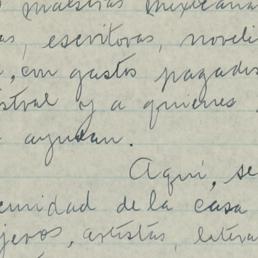 maestras mexicana
as, escritoras, noveli
, con gastos pagados
istral y a quienes
ayudan.
Aquí, se
curidad de la casa
jeros, artistas, litera